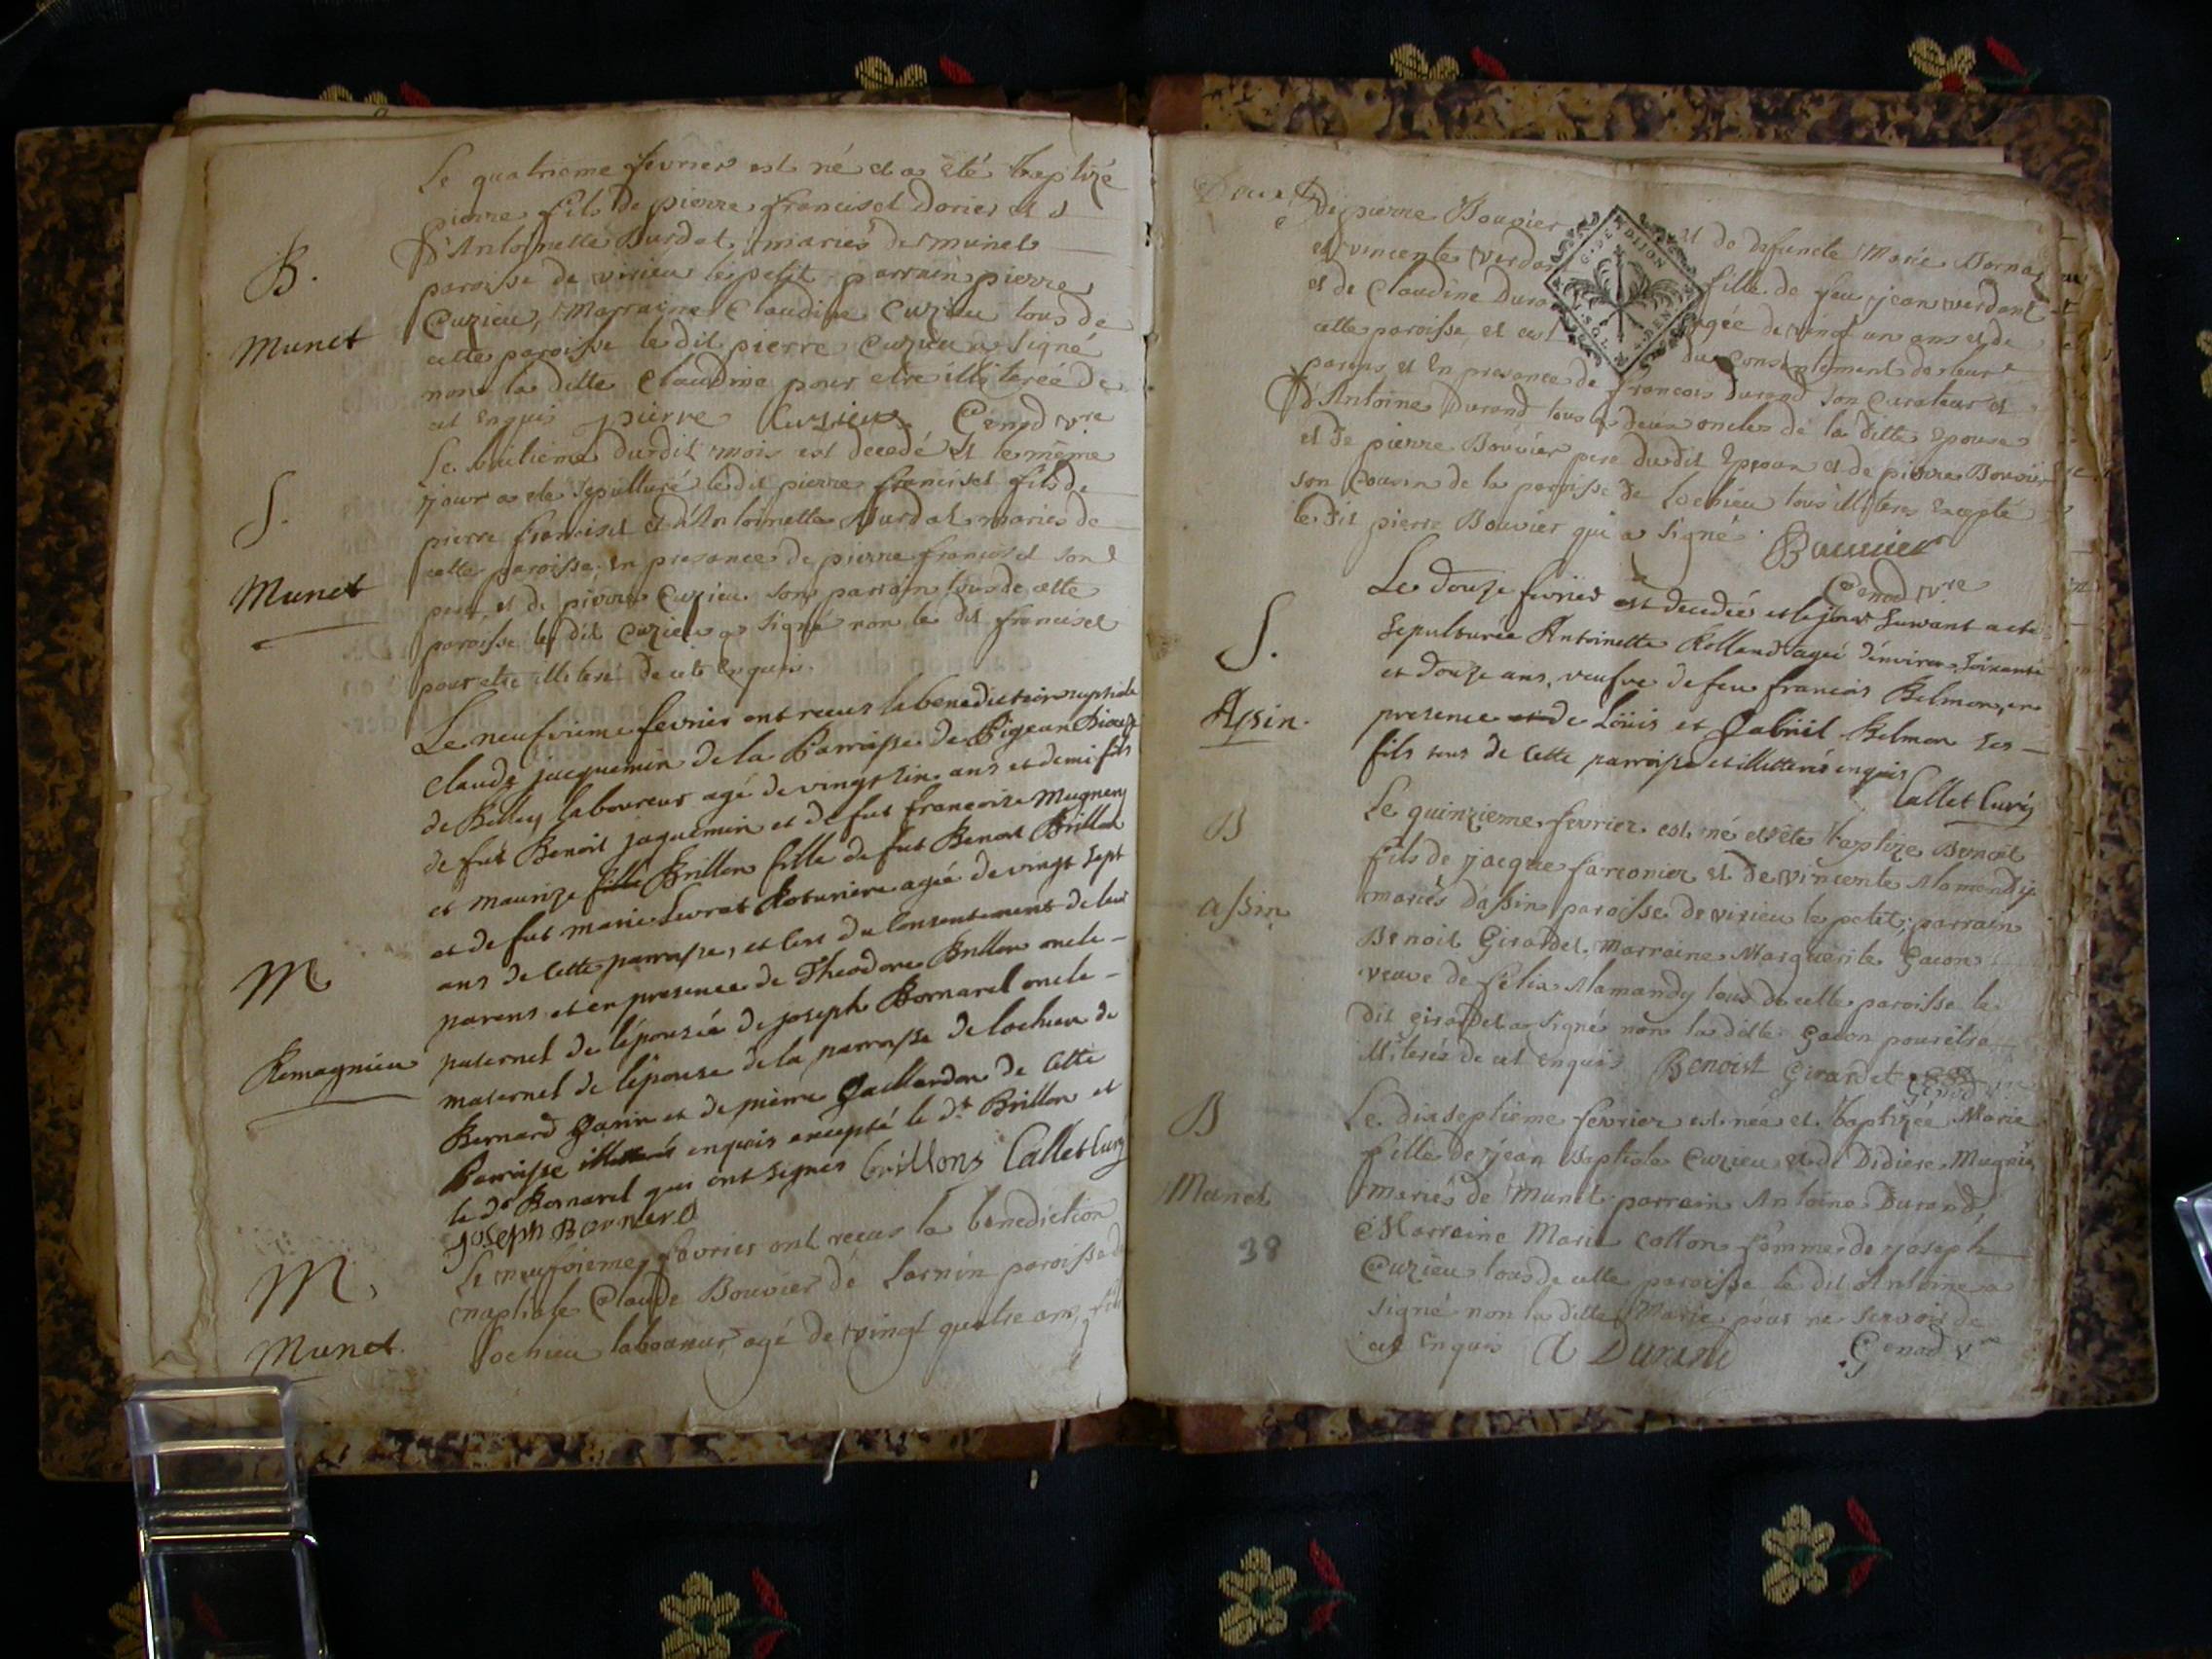 Le quatrieme fevrier est né et a été baptizé
pierre fils de pierre francisel Dorier et
d'Antoinette Burdet mariés de munet
paroisse de virieu le petit parrain pierre
B.
Cuzieu, Marraine Claudine Cuzieu tous de
Munet
cette paroisse le dit pierre Cuzieu a signé
non la ditte Claudine pour etre illiterée de
ce enquis pierre Cuzieu Genod vre
Le huitieme dudit mois est decedé et le même
jour a ete sepulturé le dit pierre francisel fils de
S.
pierre francisel et d'Antoinette Burdet mariés de
cette paroisse en presance de pierre francisel son
Munet
pere et de pierre Cuzieu son parrain tous de cette
paroisse le dit Cuzieu a signé non le dit francisel
pour etre illiteré de ce enquis.
Le neufvieme fevrier ont receus la benediction nuptiale
Claude jacquemin de la Parroisse de
de Belley laboureur agé de vingt cinq ans et demi fils
de fut Benoit jaquemin et de fut francoise Mugnery
et maurize fille Brillon fille de fut Benoit Brillon
et de fut marie Levrat Roturiere agée de vingt sept
ans de cette parroisse, et ce du consentement de leur
M
parens et en presence de Theodore Brillon oncle
paternel de l'épousée de joseph Bornarel oncle
Remagnieu
maternel de l'épouse de la parroisse de lochieu de
Bernard Garin et de pierre Gaillardon de cette
Parroisse illitterés enquis excepté le dt Brillon et
le dt Bornarel qui ont signés brillons Callet Curé
joseph Bornarel
M.
Le neufvieme fevrier ont receus la benediction
nuptiale Claude Bouvier de Sornin paroisse de
Munet.
lochieu laboureur agé de vingt quatre ans, fils
de pierre Bouvier et de defuncte Marie Bornar
et vincente verdan fille de feu jean verdant
et de Claudine Duran agée de vingt un ans et de
cette paroisse et du consentement de leur
parens et en presance de francois durand son curateur et
d'Antoine Durand tous deux oncles de la ditte epouse
et de pierre Bouvier pere dudit epoux et de pierre Bouvier
son cousin de la paroisse de lochieu tous illiteres excepté
le dit pierre Bouvier qui a signé. Bouvier
Genod vre
Le douze fevrier est decedée et le jour suivant a ete
S.
sepulturée Antoinette Rolland agée d'environ soixante
et douze ans, veufve de feu francois Belmon, en
Assin.
presence de Loüis et Gabriel Belmon ses
fils tous de cette parroisse et illitterés enquis
Callet Curé
B
Le quinzieme fevrier est né et été baptize Benoit
fils de jacque farconier et de vincente Alamandy
assin
mariés d'assin paroisse de virieu le petit; parrain
Benoit Girardet, marraine Marguerite Gacon
veuve de felix Alamandy tous de cette paroisse le
dit girardet a signé non la ditte Gacon pour etre
illiterés de ce enquis Benoist Girardet Genod
B
Le dixseptieme fevrier est née et baptizée Marie
fille de jean Baptiste Cuzieu et de Didiere Mugnier
Munet
mariés de Munet parrain Antoine Durand,
Marraine Marie Cotton femme de joseph
38
Cuzieu tous de cette paroisse le dit Antoine a
signé non la ditte Marie pour ne scavoir de
ce enquis A Durand Genod vre